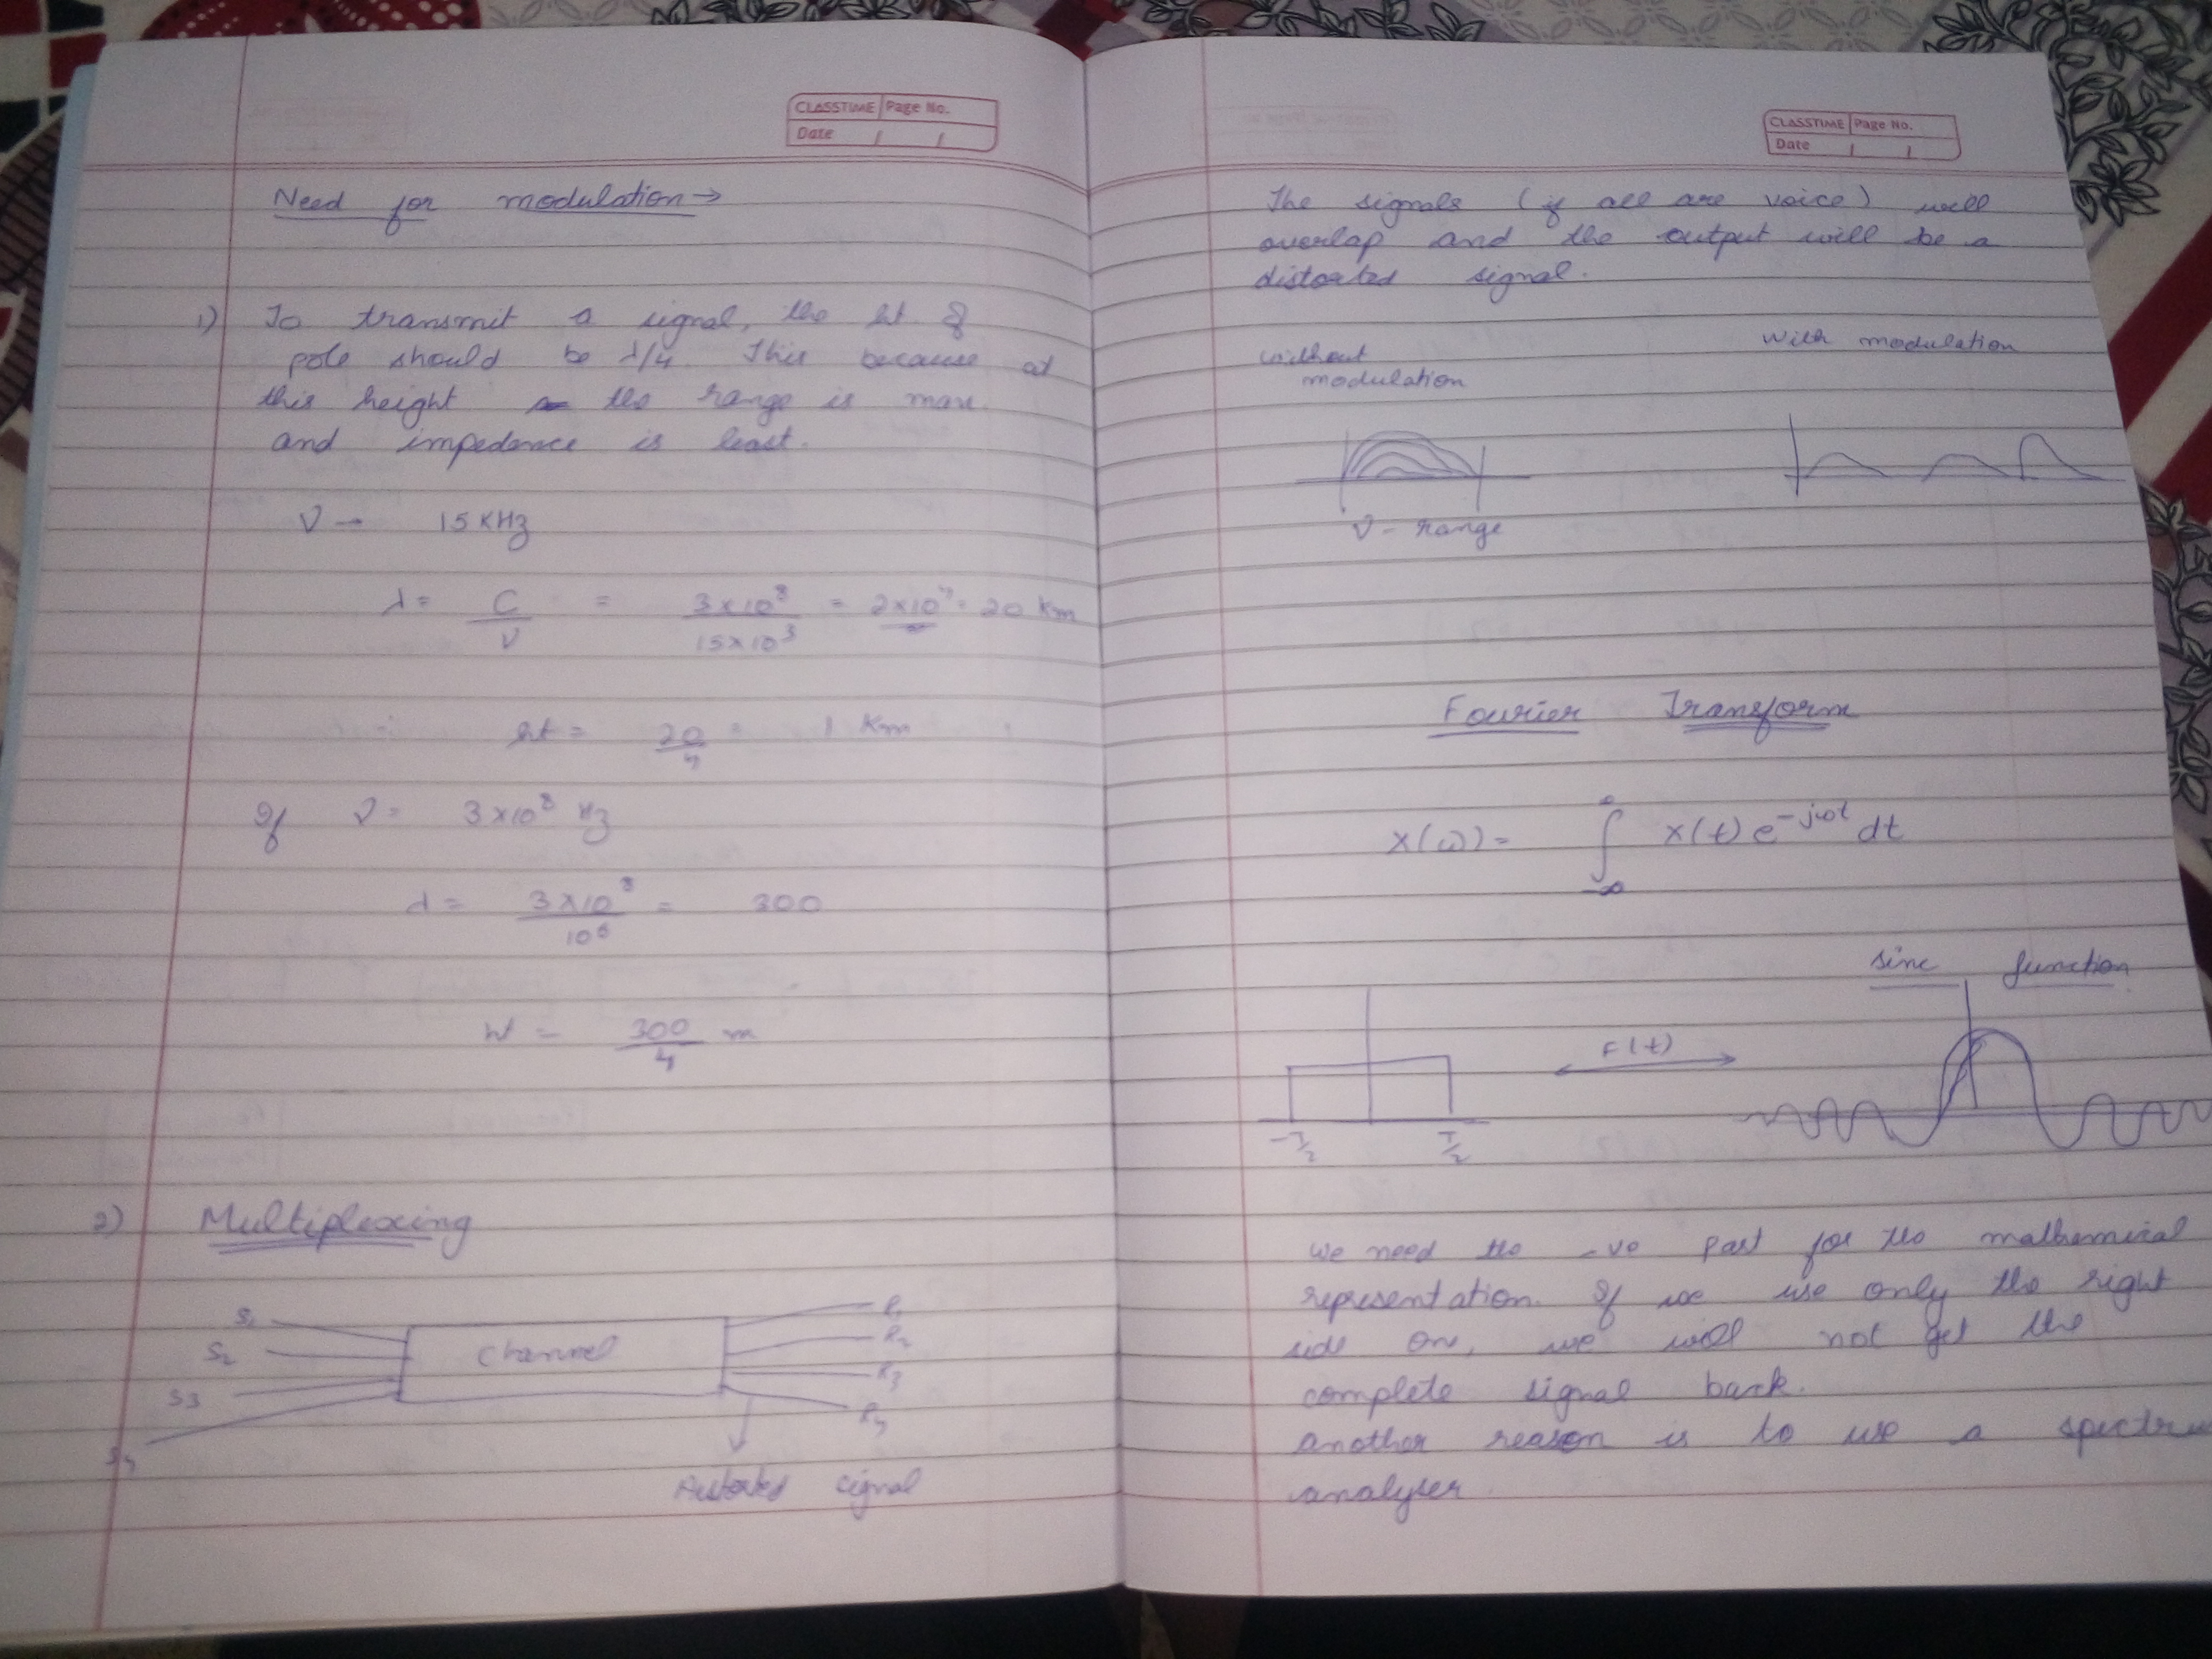 CLASSTIME Page No.
Date / /
Need for modulation →
1) To transmit a signal, the ht of
pole should be λ/4. This because at
this height the range is max
and impedence is least.
ν → 15 KHz
λ = C/ν = 3×10⁸/15×10³ = 2×10⁴ = 20 Km
ht = 20/4 = 1 Km
If ν = 3×10⁸ Hz
λ = 3×10⁸/10⁶ = 300
ht = 300/4 m
2) Multiplexing
S1
S2
S3
S4
Channel
R1
R2
R3
R4
Distorted signal
CLASSTIME Page No.
Date / /
The signals (if all are voice) will
overlap and the output will be a
distorted signal.
without
modulation
with modulation
ν - range
Fourier Transform
X(ω) = ∫ x(t) e^-jωt dt
∞
-∞
sinc function
F(t)
-T/2
T/2
We need the -ve part for the mathemical
representation. If we use only the right
side on, we will not get the
complete signal back.
another reason is to use a spectru
analyser